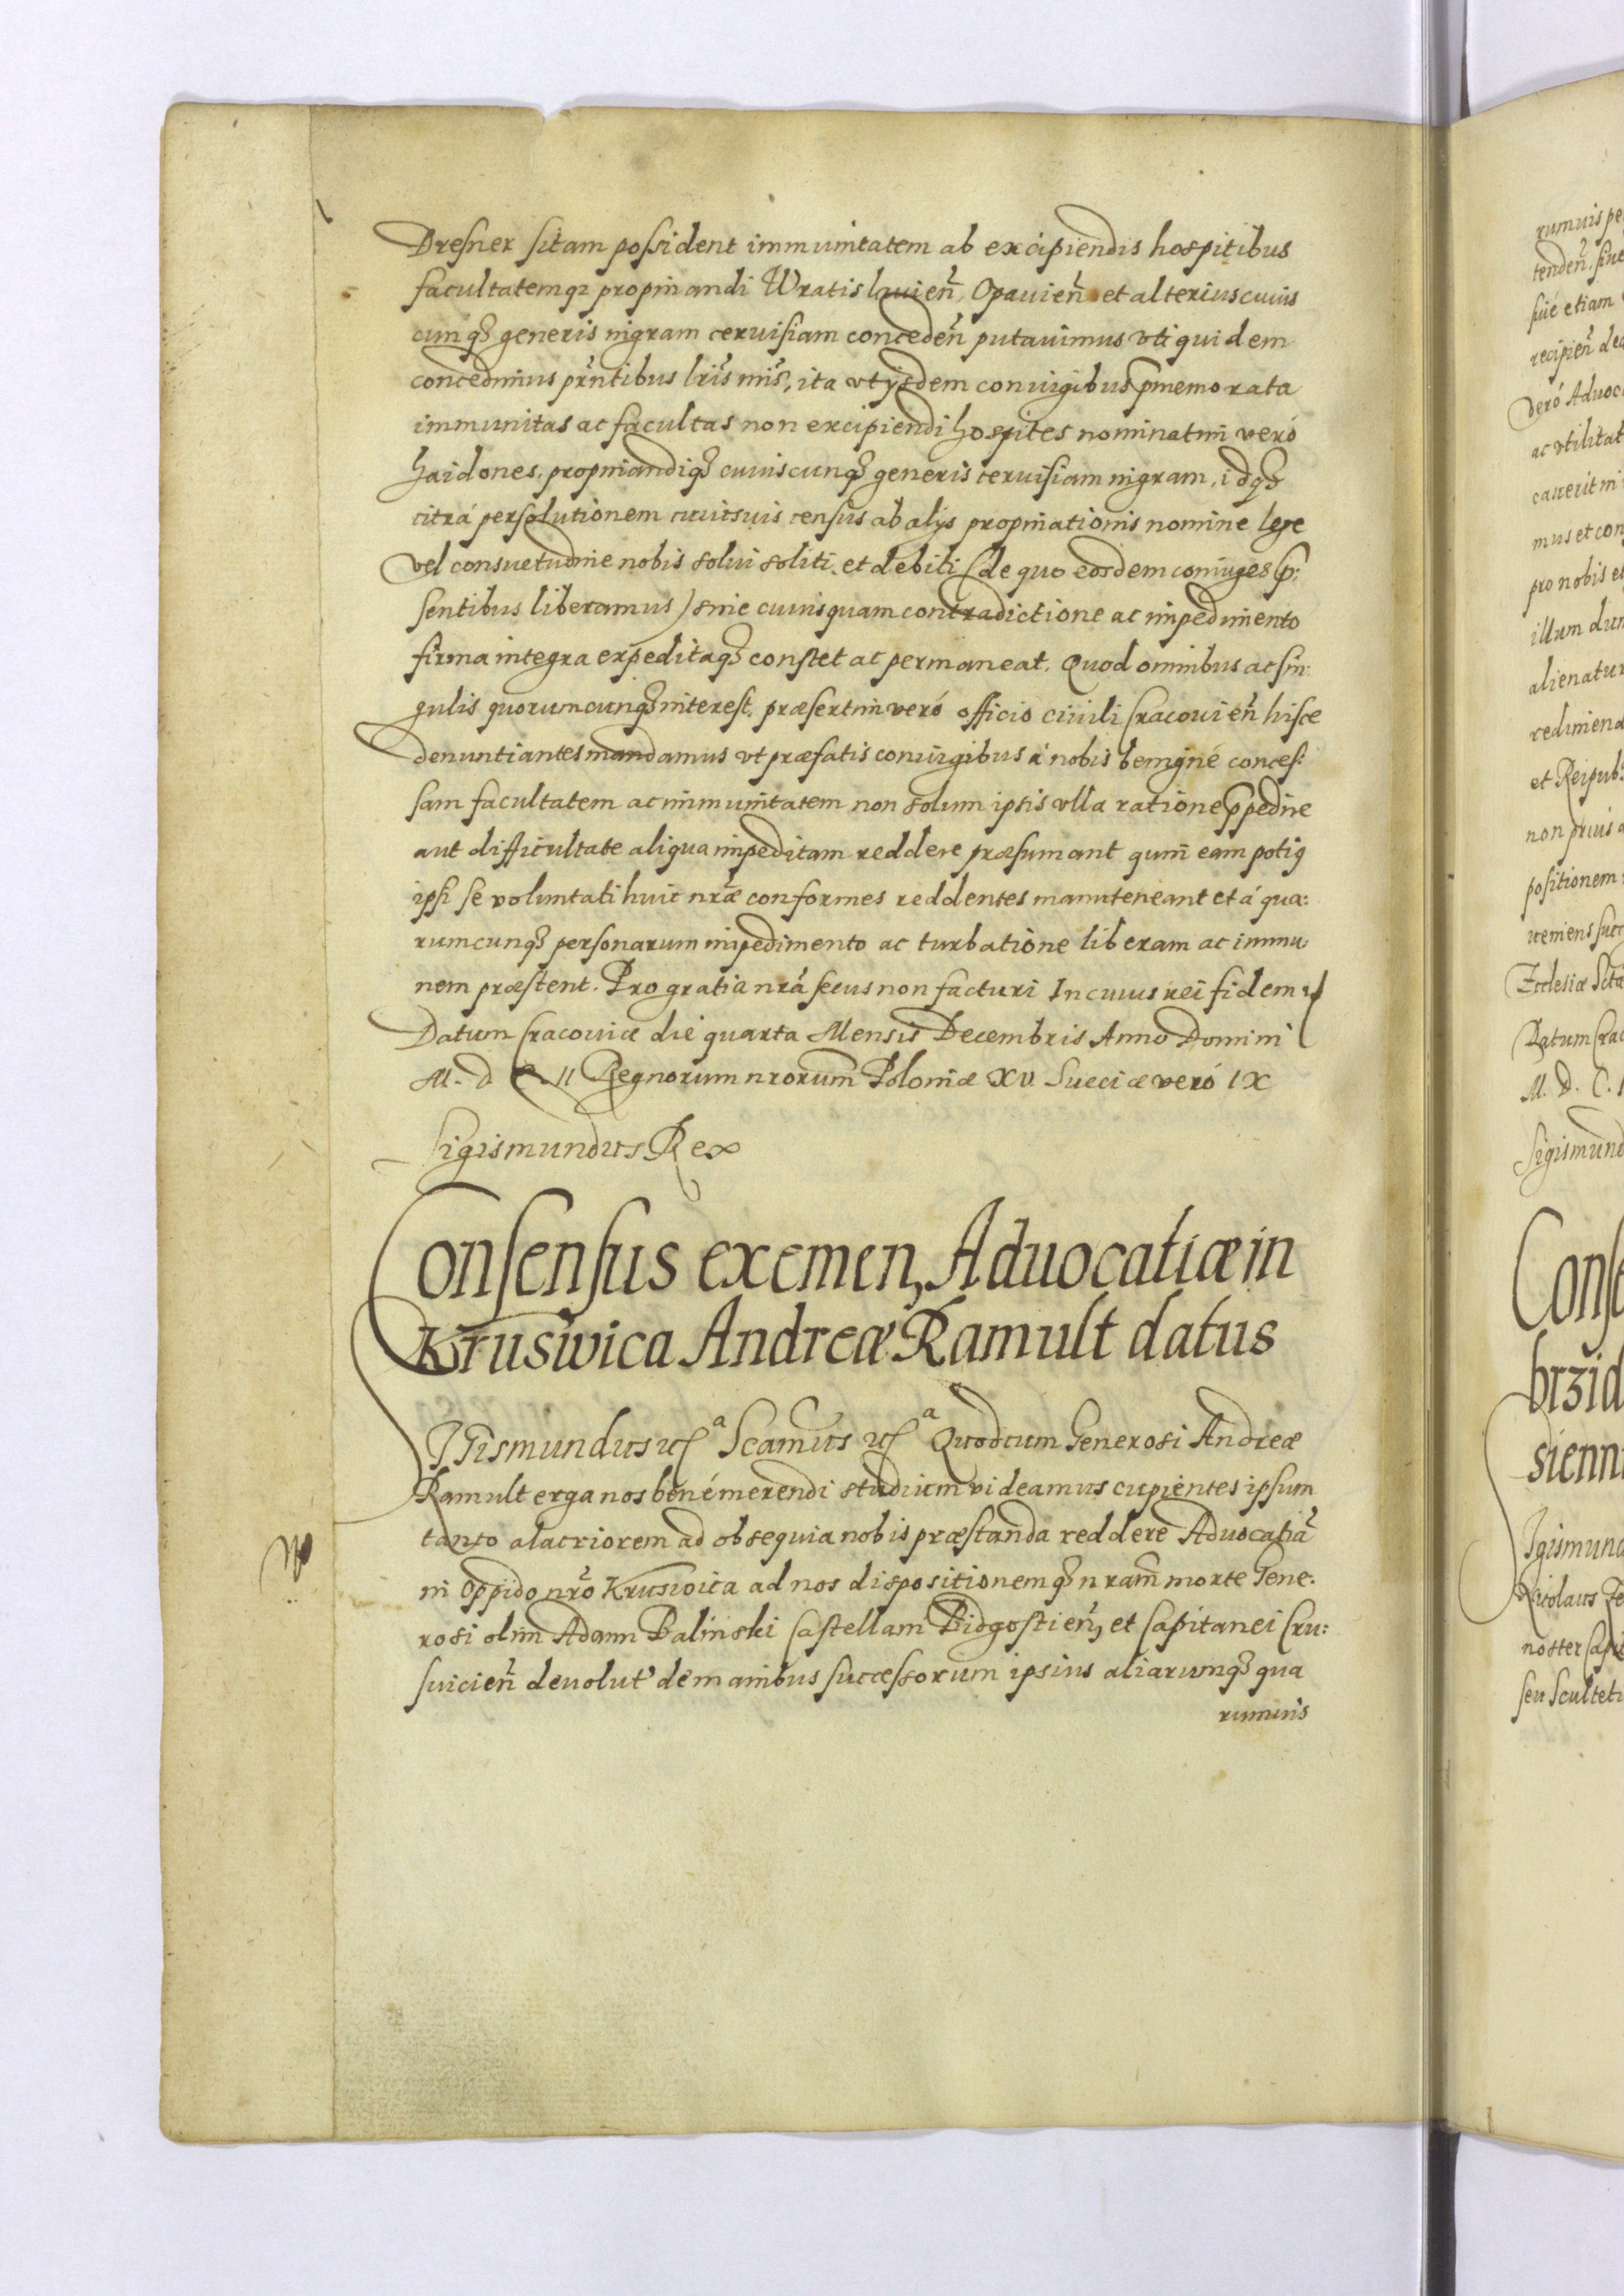 Dresner sitam possident immunitatem ab excipiendis hospitibus
facultatemq₃ propinandi Wratislauien̄, Opauien̄ et alterius cuius
cunq₃ generis nigram ceruisiam conceden̄ putauimus vti quidem
concedimus prn̄tibus lris nris̄, ita vt ijsdem coniugibus pmemorata
immunitas ac facultas non excipiendi hospites nominatim veró
Haidones, propinandiq₃ cuiuscunq₃ generis ceruisiam nigram, idq₃
citrá persolutionem cuiusuis census ab alijs propinationis nomine lege
vel consuetudine nobis solui soliti et debiti (de quo eosdem coniuges p:
sentibus liberamus) sine cuiusquam contradictione ac impedimento
firma integra expeditaq₃ constet ac permaneat. Quod omnibus ac sin:
gulis quorumcunq₃ interest, præsertim veró officio ciuili Cracouien̄ hisce
denuntiantes mandamus vt præfatis coniugibus á nobis benigné conces:
sam facultatem ac immunitatem non solum ipsis vlla ratione ppedire
aut difficultate aliqua impeditam reddere præsumant quin eam potiq
ipsi se voluntati huic nrǣ conformes reddentes manuteneant et á qua:
rumcunq₃ personarum impedimento ac turbatione liberam ac immu:
nem præstent. Pro gratia nrá secus non facturi In cuius rei fidem
Datum Cracouiæ die quarta Mensis Decembris Anno Domini
M. D C. II Regnorum nrorum̄ Poloniæ XV. Sueciæ veró IX
Sigismundus Rex
Consensus eximen, Aduocatiæ in
Kruswica Andreæ Ramult datus
Sigismundus Scamus Quod cum Generosi Andreæ
Ramult erga nos bené merendi studium videamus cupientes ipsum
tanto alacriorem ad obsequia nobis præstanda reddere Aduocatiā
in Oppido nrō Kruswica ad nos dispositionemq₃ nram̄ morte Gene:
rosi olim Adam Balinski Castellani Bidgostien̄, et Capitanei Cru:
suicien̄ deuolut' de manibus successorum ipsius aliarumq₃ qua
rumuis
rumuis pe
tenden̄, siue
siué etiam
recipien̄ de
deró Aduoc
ac vtilitat
cauerit in
mus et con
pro nobis et
illum dum
alienatur
redimend
et Reipub:
non prius
positionem
ueniens succ
Ecclesiæ
Datum Crac
M. D. C.
Sigismund
Conse
brzid
sienn
Sigismund
Nicolaus
noster Capi
seu Sculteti